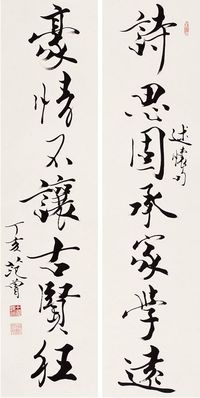 詩思固承家學遠
述懷
豪情不讓古賢狂
丁亥范曾